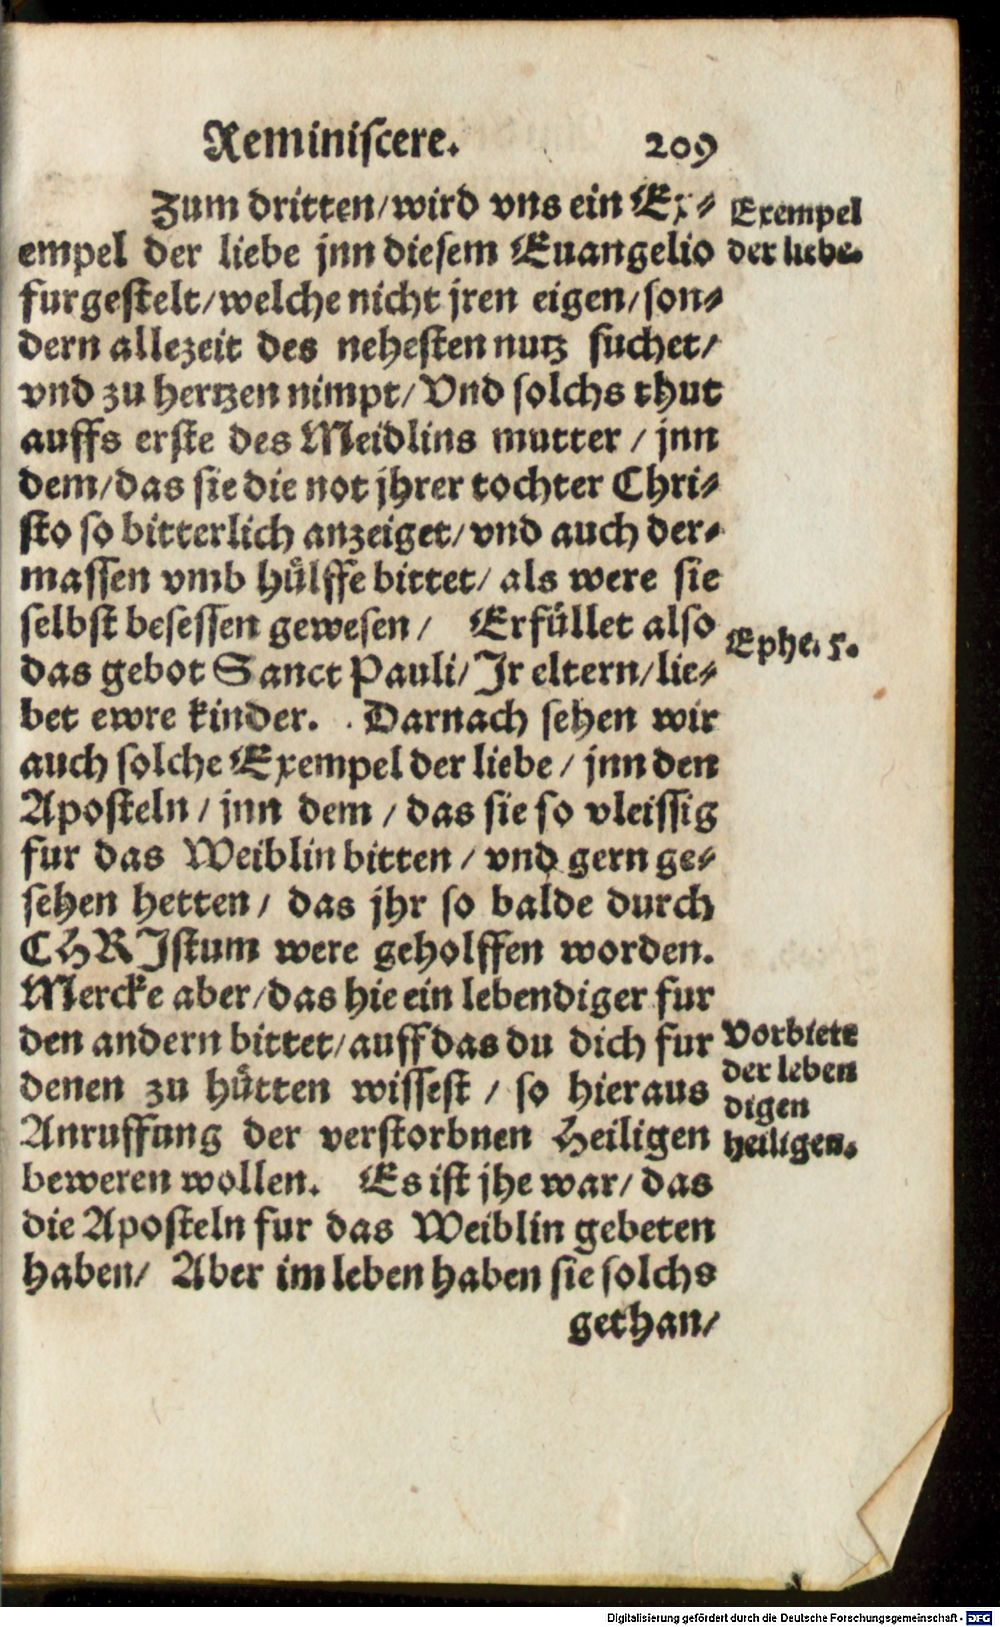 Reminiscere. 209
Zum dritten/wird vns ein Ex⸗
empel der liebe jnn diesem Euangelio
furgestelt/welche nicht jren eigen/son⸗
dern allezeit des nehesten nutz suchet/
vnd zu hertzen nimpt/Vnd solchs thut
auffs erste des Meidlins mutter / jnn
dem/das sie die not jhrer tochter Chri⸗
sto so bitterlich anzeiget/vnd auch der⸗
massen vmb hůlffe bittet/ als were sie
selbst besessen gewesen/ Erfůllet also
das gebot Sanct Pauli/Jr eltern/lie⸗
bet ewre kinder. Darnach sehen wir
auch solche Exempel der liebe / jnn den
Aposteln / jnn dem / das sie so vleissig
fur das Weiblin bitten / vnd gern ge⸗
sehen hetten / das jhr so balde durch
CHRJstum were geholffen worden.
Mercke aber/das hie ein lebendiger fur
den andern bittet/auff das du dich fur
denen zu hůtten wissest / so hieraus
Anruffung der verstorbnen Heiligen
beweren wollen. Es ist jhe war/ das
die Aposteln fur das Weiblin gebeten
haben/ Aber im leben haben sie solchs
gethan/
Exempel
der liebe.
Ephe. 5.
Vorbiete
der leben
digen
heiligen.
Digitalisierung gefördert durch die Deutsche Forschungsgemeinschaft - DFG